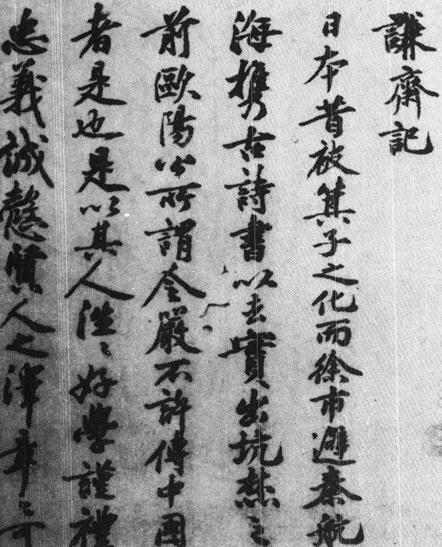 謙齋記
日本昔被箕子之化而徐市避秦航
海携古詩書以去實出坑焚之
前歐陽公所謂令嚴不許傳中國
者是也是以其人泄〻好學謹禮
忠義誠慤賢人之澤章〻可